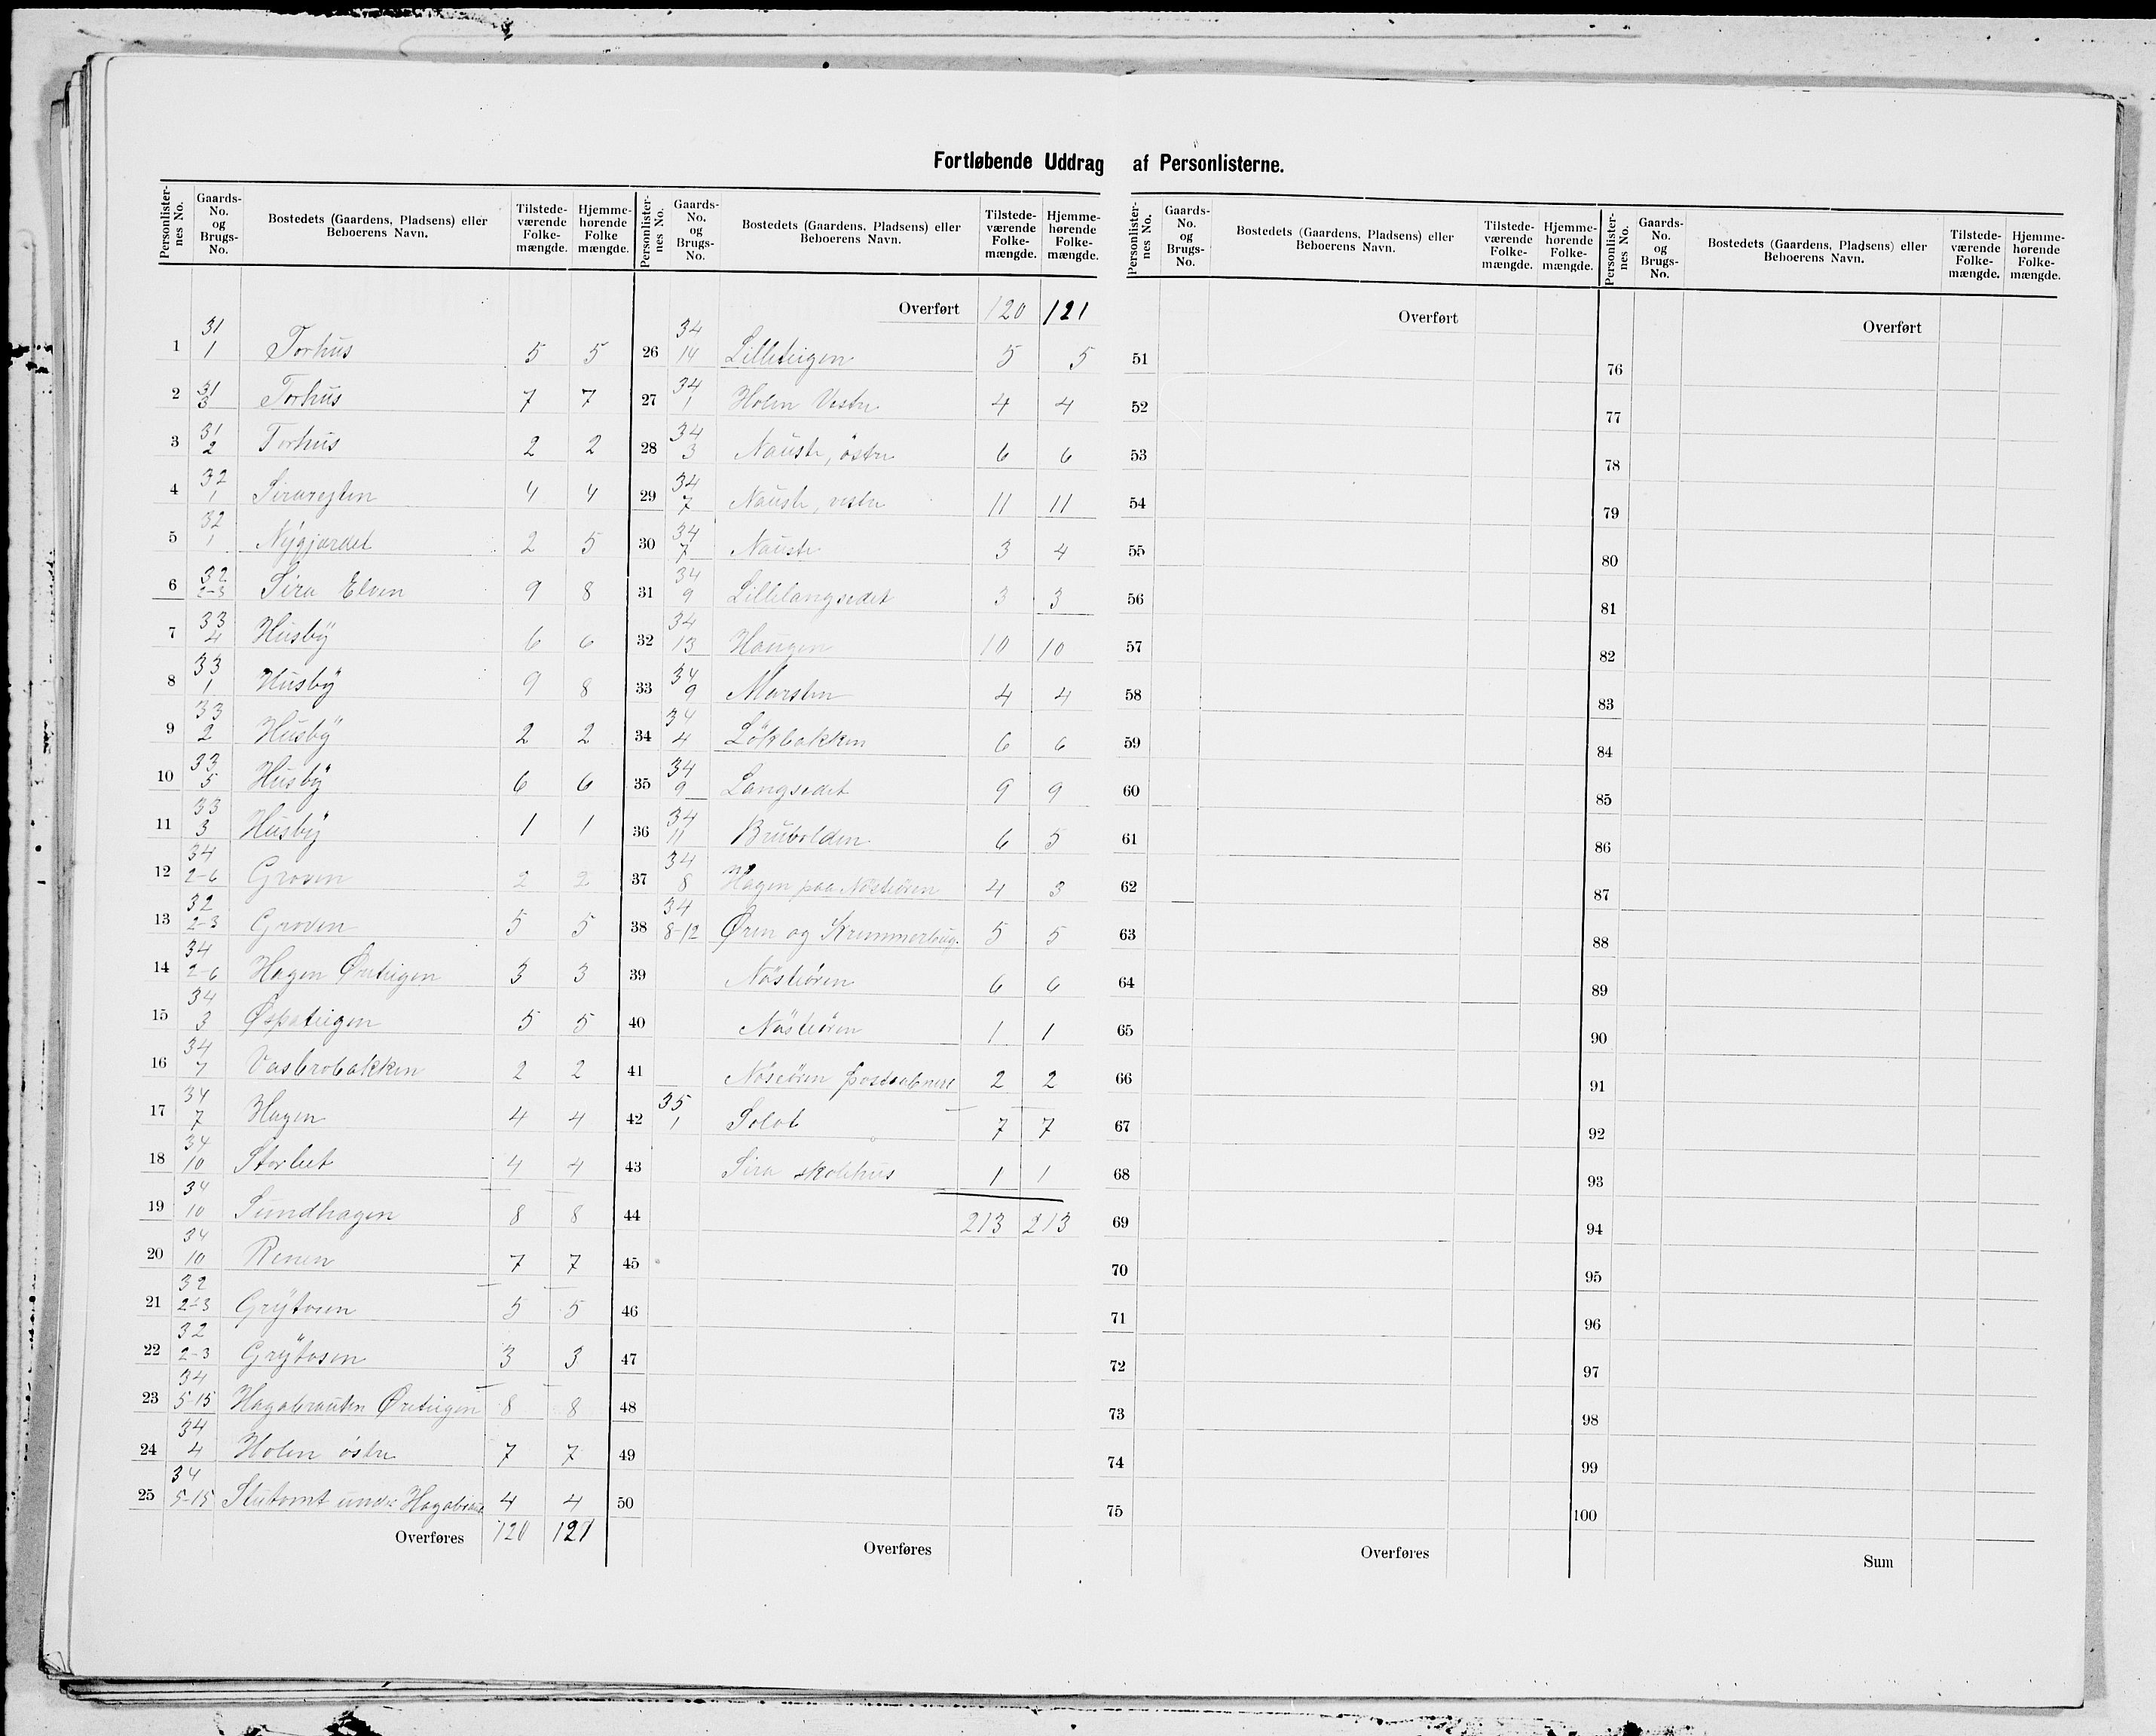 Fortløbende Uddrag af Personlisterne.
Personlisternes No. Gaards-No. og Brugs-No. Bostedets (Gaardens, Pladsens) eller Beboerens Navn. Tilstedeværende Folkemængde. Hjemmehørende Folkemængde.
1 31/1 Torhus 5 5
2 31/3 Torhus 7 7
3 31/2 Torhus 2 2
4 32/1 4 4
5 32/1 Nygjærdet 2 5
6 32/2-3 Sira Elven 9 8
7 33/4 Husby 6 6
8 33/1 Husby 9 8
9 33/2 Husby 2 2
10 33/5 Husby 6 6
11 33/3 Husby 1 1
12 34/2-6 Groven 2 2
13 32/2-3 Groven 5 5
14 34/2-6 Hagen Øreteigen 3 3
15 34/3 Øspateigen 5 5
16 34/7 Vasbrobakken 2 2
17 34/7 Hagen 4 4
18 34/10 Storleet 4 4
19 34/10 Sundhagen 8 8
20 34/10 Renen 7 7
21 32/2-3 Grytosen 5 5
22 32/2-3 Grytosen 3 3
23 34/5-15 Hagabrauten Øreteigen 8 8
24 34/4 Holen östre 7 7
25 34/5-15 under 4 4
Overføres 120 121
Overført 120 121
26 34/14 Lilleteigen 5 5
27 34/1 Holen Vestre 4 4
28 34/3 Nauste, östre 6 6
29 34/7 Nauste, vestre 11 11
30 34/7 Nauste 3 4
31 34/9 Lillelangsædet 3 3
32 34/13 Haugen 10 10
33 34/9 Marsten 4 4
34 34/4 Lökbakken 6 6
35 34/9 Langsædet 9 9
36 34/11 Brubolden 6 5
37 34/8 Hagen paa Nösteören 4 3
38 34/8-12 Øren og 5 5
39 Nösteören 6 6
40 Nösteören 1 1
41 Nösteören 2 2
42 35/1 7 7
43 Sira skolehus 1 1
44 213 213
45
46
47
48
49
50
Overføres
Overført
51
52
53
54
55
56
57
58
59
60
61
62
63
64
65
66
67
68
69
70
71
72
73
74
75
Overføres
Overført
76
77
78
79
80
81
82
83
84
85
86
87
88
89
90
91
92
93
94
95
96
97
98
99
100
Sum